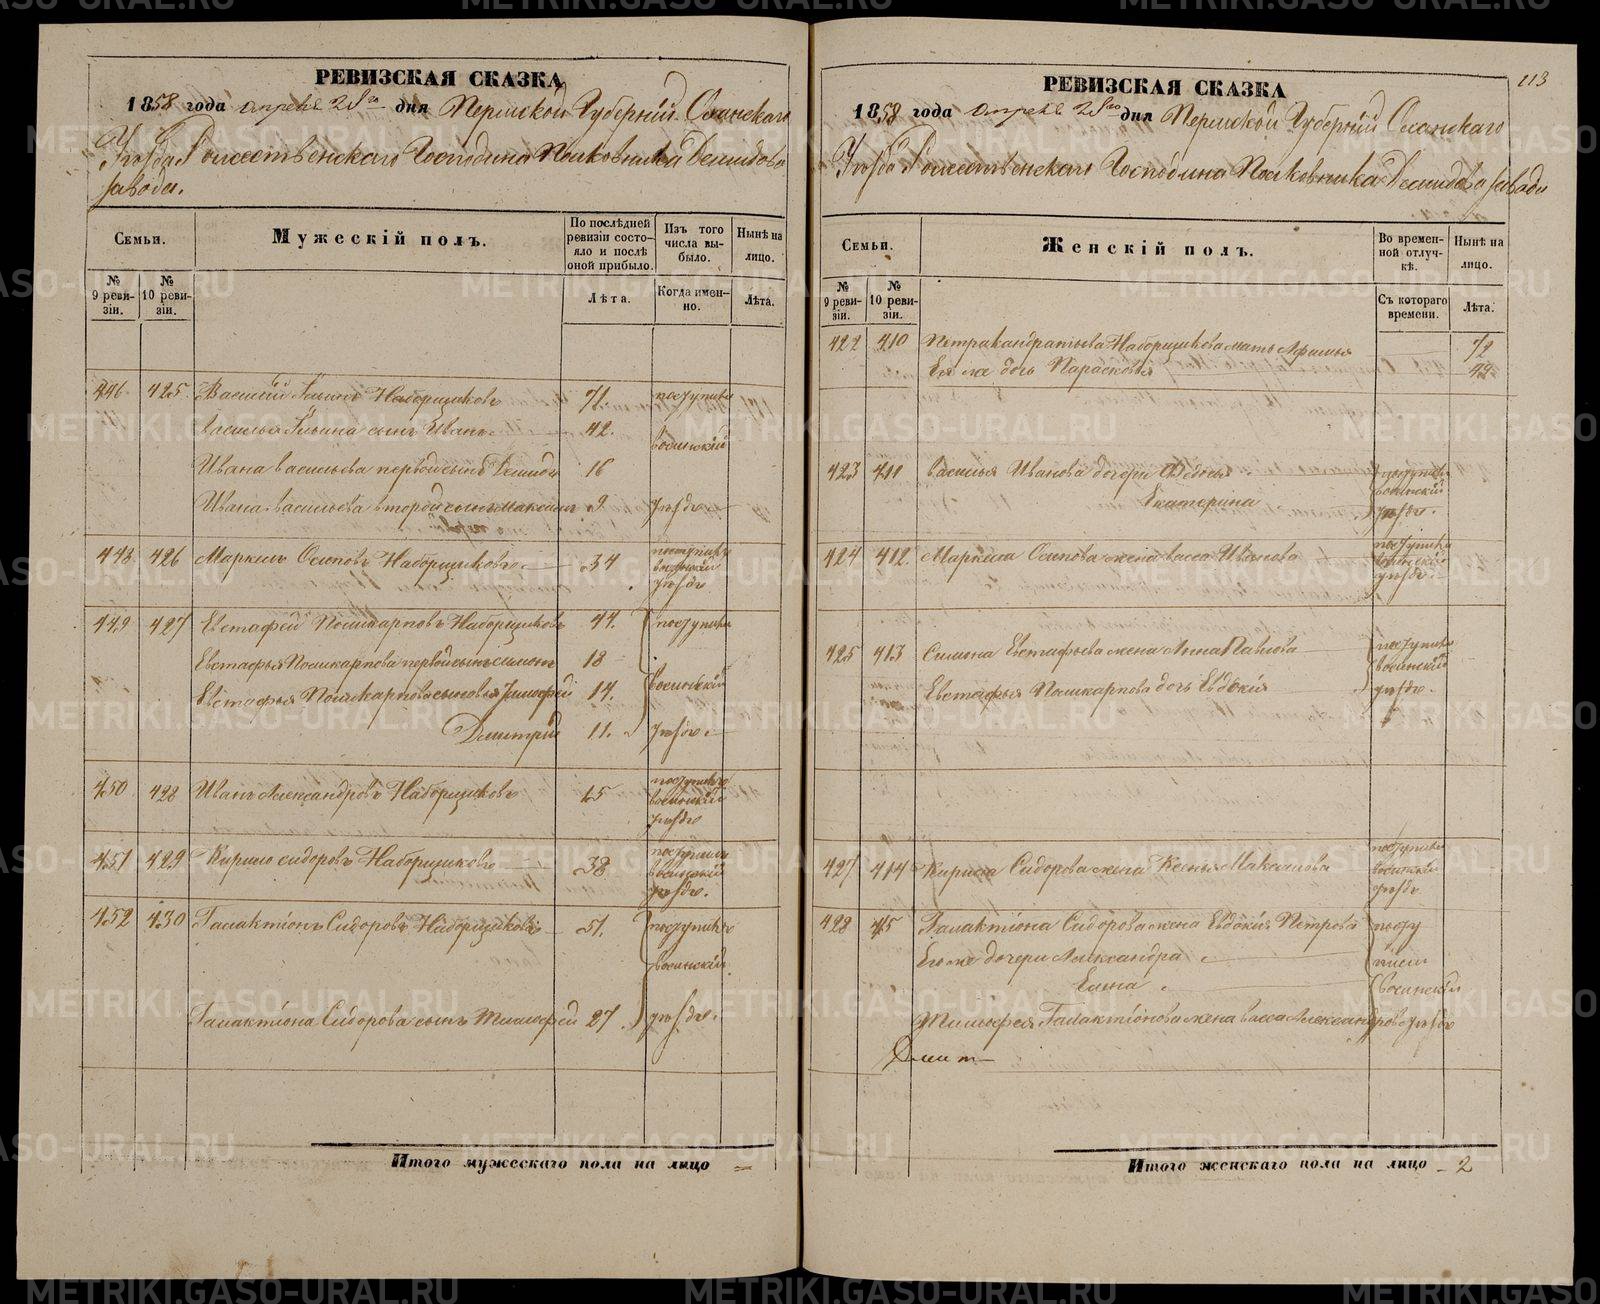 РЕВИЗСКАЯ СКАЗКА
1858 года апреля 28го дня Пермской Губернiи Осинскаго
Уѣзда Рожественскаго Господина Полковника Демидова
завода.
Семьи.
Мужескій полъ.
По послѣдней ревизіи состояло и послѣ оной прибыло.
Изъ того числа выбыло.
Нынѣ на лицо.
№ 9 ревизіи.
№ 10 ревизіи.
Лѣта.
Когда именно.
Лѣта.
446 425 Василій Ильинъ Наборщиковъ 71.
Василья Ильина сынъ Иванъ 42.
Ивана Васильева первой сынъ Демидъ 16
Ивана Васильева второй сынъ Максимъ 9
448 426 Маркелъ Осиповъ Наборщиковъ 34
449 427 Евстафей Поликарповъ Наборщиковъ 44.
Евстафья Поликарпова первой сынъ Симонъ 18
Евстафья Поликарпова сыновья Тимофей 14.
Дмитрій 11.
450 428 Иванъ Александровъ Наборщиковъ 15
451 429 Кирило Сидоровъ Наборщиковъ 38
452 430 Галактіонъ Сидоровъ Наборщиковъ 51.
Галактіона Сидорова сынъ Тимофей 27.
Итого мужескаго пола на лицо =
113
РЕВИЗСКАЯ СКАЗКА
1858 года апреля 28го дня Пермской Губернiи Осинскаго
Уѣзда Рожественскаго Господина Полковника Демидова завода
Семьи.
Женскій полъ.
Во временной отлучкѣ.
Нынѣ на лицо.
№ 9 ревизіи.
№ 10 ревизіи.
Съ котораго времени.
Лѣта.
422 410 Петра Кандратьева Наборщикова мать Афимья 72
Ея же дочь Парасковья 42
423 411 Василья Иванова дочери Федосья
Екатерина
424 412. Маркела Осипова жена Васса Иванова
425 413 Симона Евстафьева жена Анна Павлова
Евстафья Поликарпова дочь Евдокія
427 414 Кирила Сидорова жена Ксенья Максимова
428 415 Галактіона Сидорова жена Евдокія Петрова
Его же дочери Александра
Елена
Тимофея Галактіонова жена Васса Александрова
Итого женскаго пола на лицо 2
METRIKI.GASO-URAL.RU